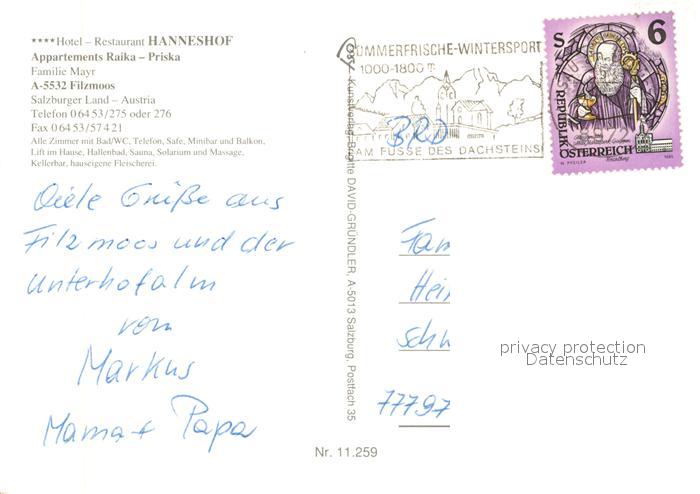 ****Hotel – Restaurant HANNESHOF
Appartements Raika – Priska
Familie Mayr
A-5532 Filzmoos
Salzburger Land – Austria
Telefon 0 64 53/275 oder 276
Fax 0 64 53/574 21
Alle Zimmer mit Bad/WC, Telefon, Safe, Minibar und Balkon,
Lift im Hause, Hallenbad, Sauna, Solarium und Massage,
Kellerbar, hauseigene Fleischerei.
Viele Grüße aus
Filzmoos und der
Unterhofalm
von
Markus
Mama + Papa
Kunstverlag Brigitte DAVID-GRÜNDLER, A-5013 Salzburg, Postfach 35
SOMMERFRISCHE-WINTERSPORT
1000-1800 m
AM FUSSE DES DACHSTEINS
BRD
S 6
REPUBLIK
ÖSTERREICH
Fam
Hei
Sch
77797
privacy protection
Datenschutz
Nr. 11.259